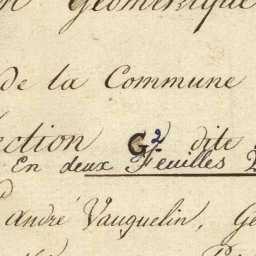 n Géométrique
de la Commune
ection G² dite
En deux Feuilles 2
andré Vauquelin, Gé